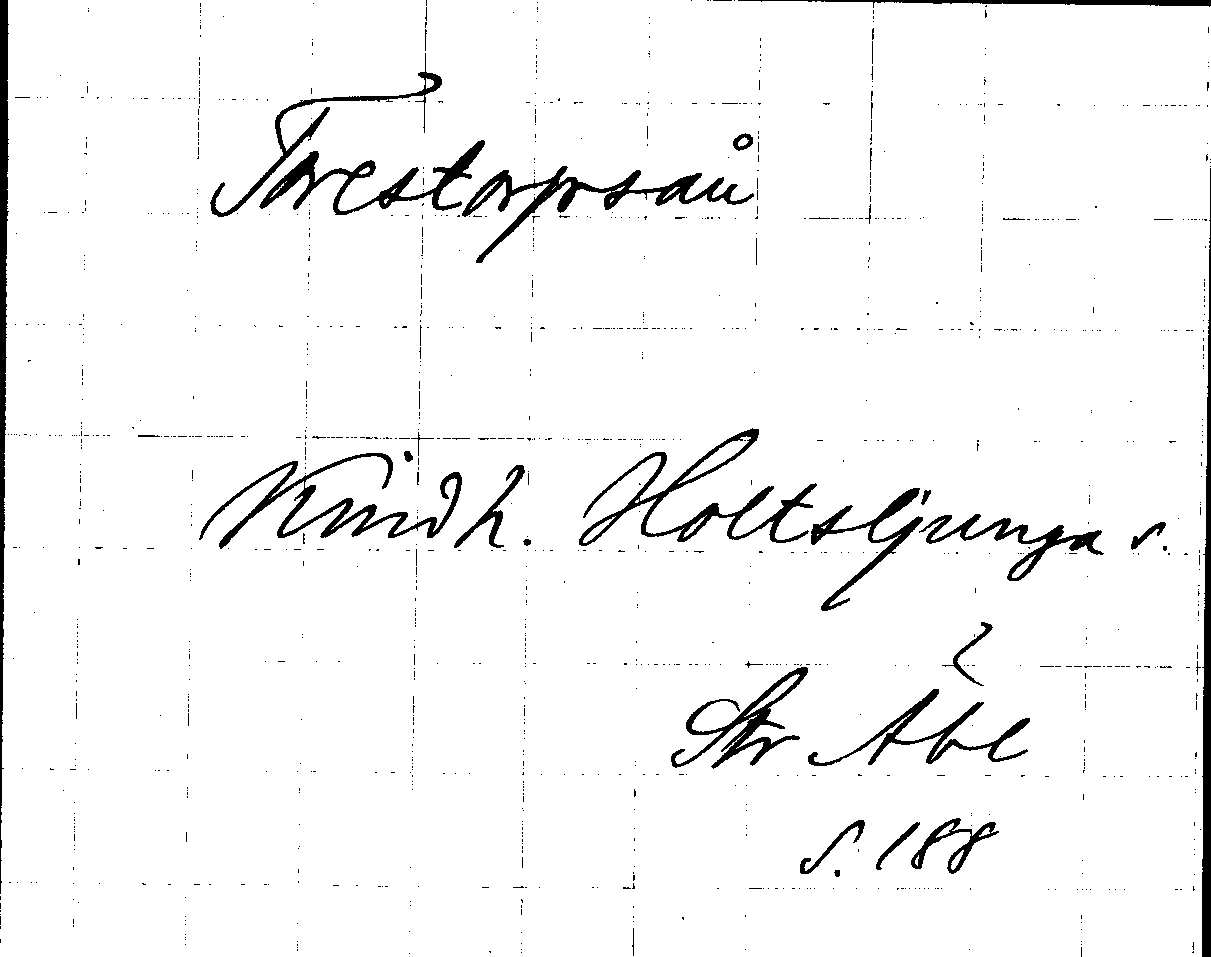 Torestorpsån
Kind h. Holtsljunga s.
Str Abl
s. 188